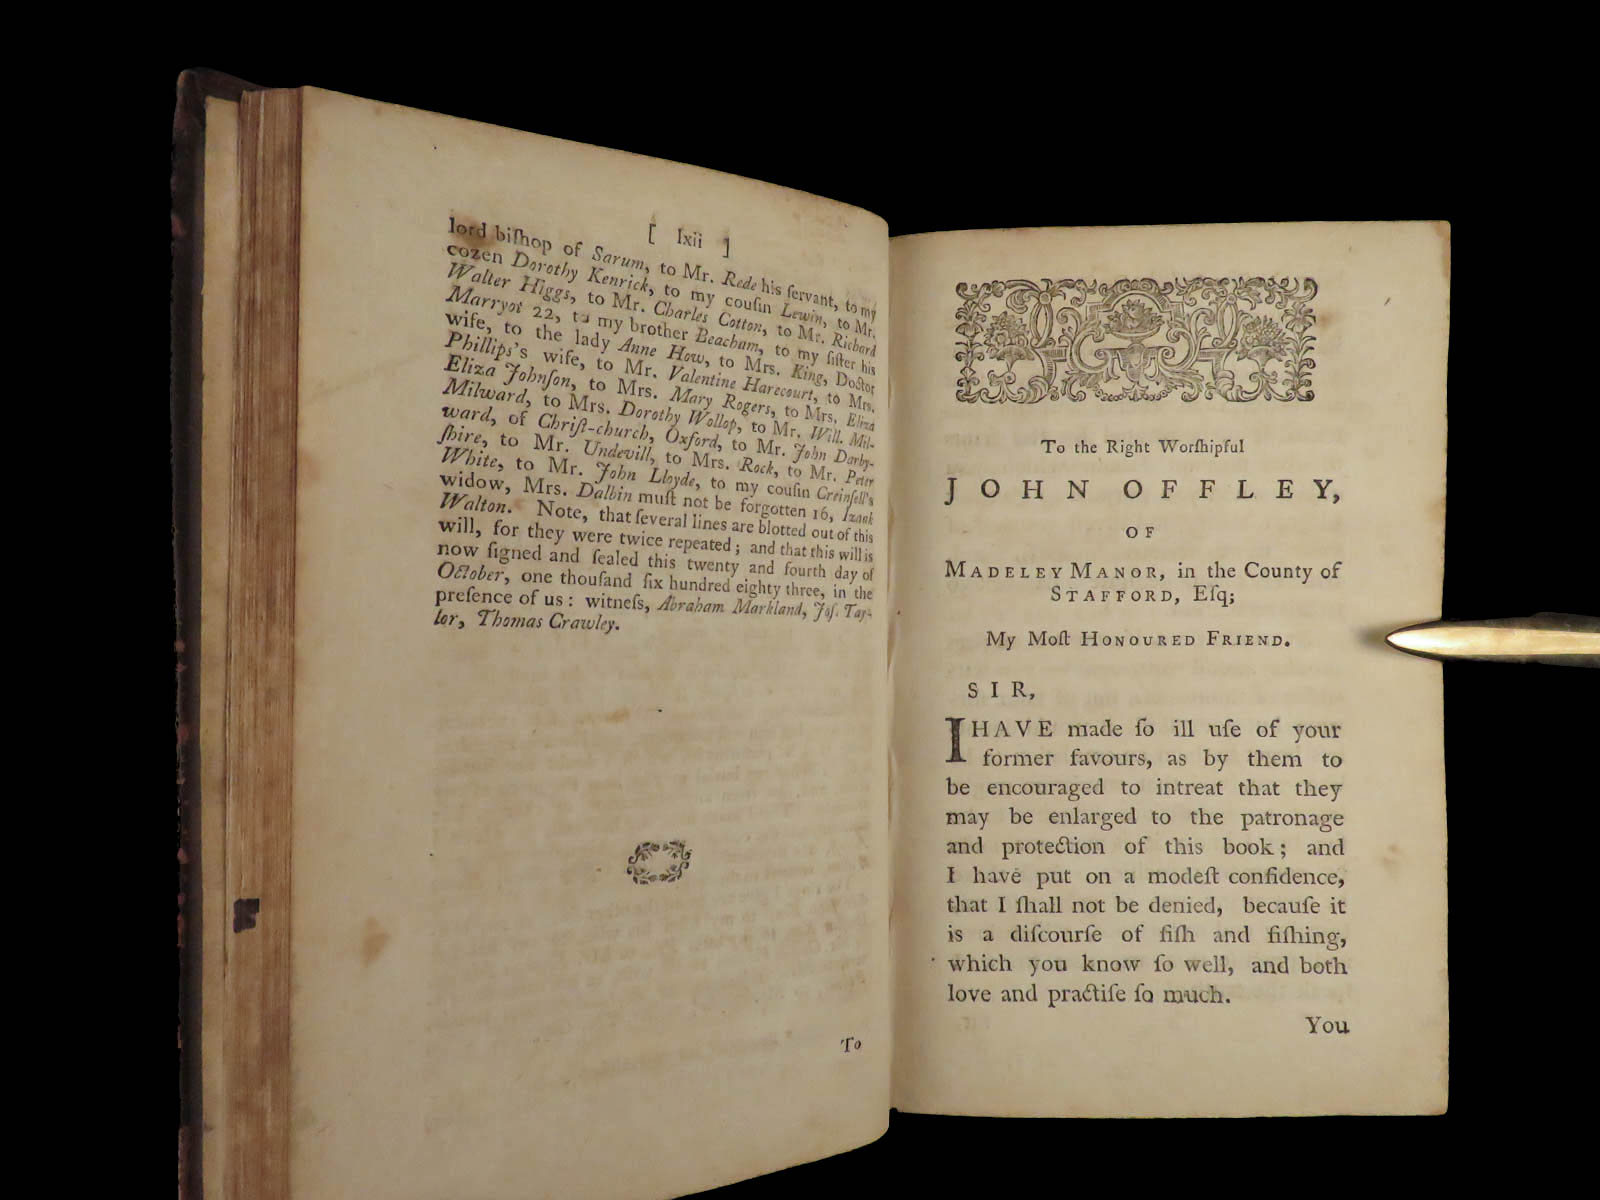 [ lxii ]
lord biſhop of Sarum, to Mr. Rede his ſervant, to my
cozen Dorothy Kenrick, to my couſin Lewin, to Mr.
Walter Higgs, to Mr. Charles Cotton, to Mr. Richard
Marryot 22, to my brother Beacham, to my ſiſter his
wife, to the lady Anne How, to Mrs. King, Doctor
Phillips's wife, to Mr. Valentine Harecourt, to Mrs.
Eliza Johnſon, to Mrs. Mary Rogers, to Mrs. Eliza
Milward, to Mrs. Dorothy Wollop, to Mr. Will. Mil-
ward, of Chriſt-church, Oxford, to Mr. John Darby-
ſhire, to Mr. Undevill, to Mrs. Rock, to Mr. Peter
White, to Mr. John Lloyde, to my couſin Creinſell's
widow, Mrs. Dalbin muſt not be forgotten 16, Izaak
Walton. Note, that ſeveral lines are blotted out of this
will, for they were twice repeated; and that this will is
now ſigned and ſealed this twenty and fourth day of
October, one thouſand ſix hundred eighty three, in the
preſence of us: witneſs, Abraham Markland, Joſ. Tay-
lor, Thomas Crawley.
To
To the Right Worſhipful
JOHN OFFLEY,
OF
MADELEY MANOR, in the County of
STAFFORD, Eſq;
My Moſt HONOURED FRIEND.
SIR,
I HAVE made ſo ill uſe of your
former favours, as by them to
be encouraged to intreat that they
may be enlarged to the patronage
and protection of this book; and
I have put on a modeſt confidence,
that I ſhall not be denied, becauſe it
is a diſcourſe of fiſh and fiſhing,
which you know ſo well, and both
love and practiſe ſo much.
You